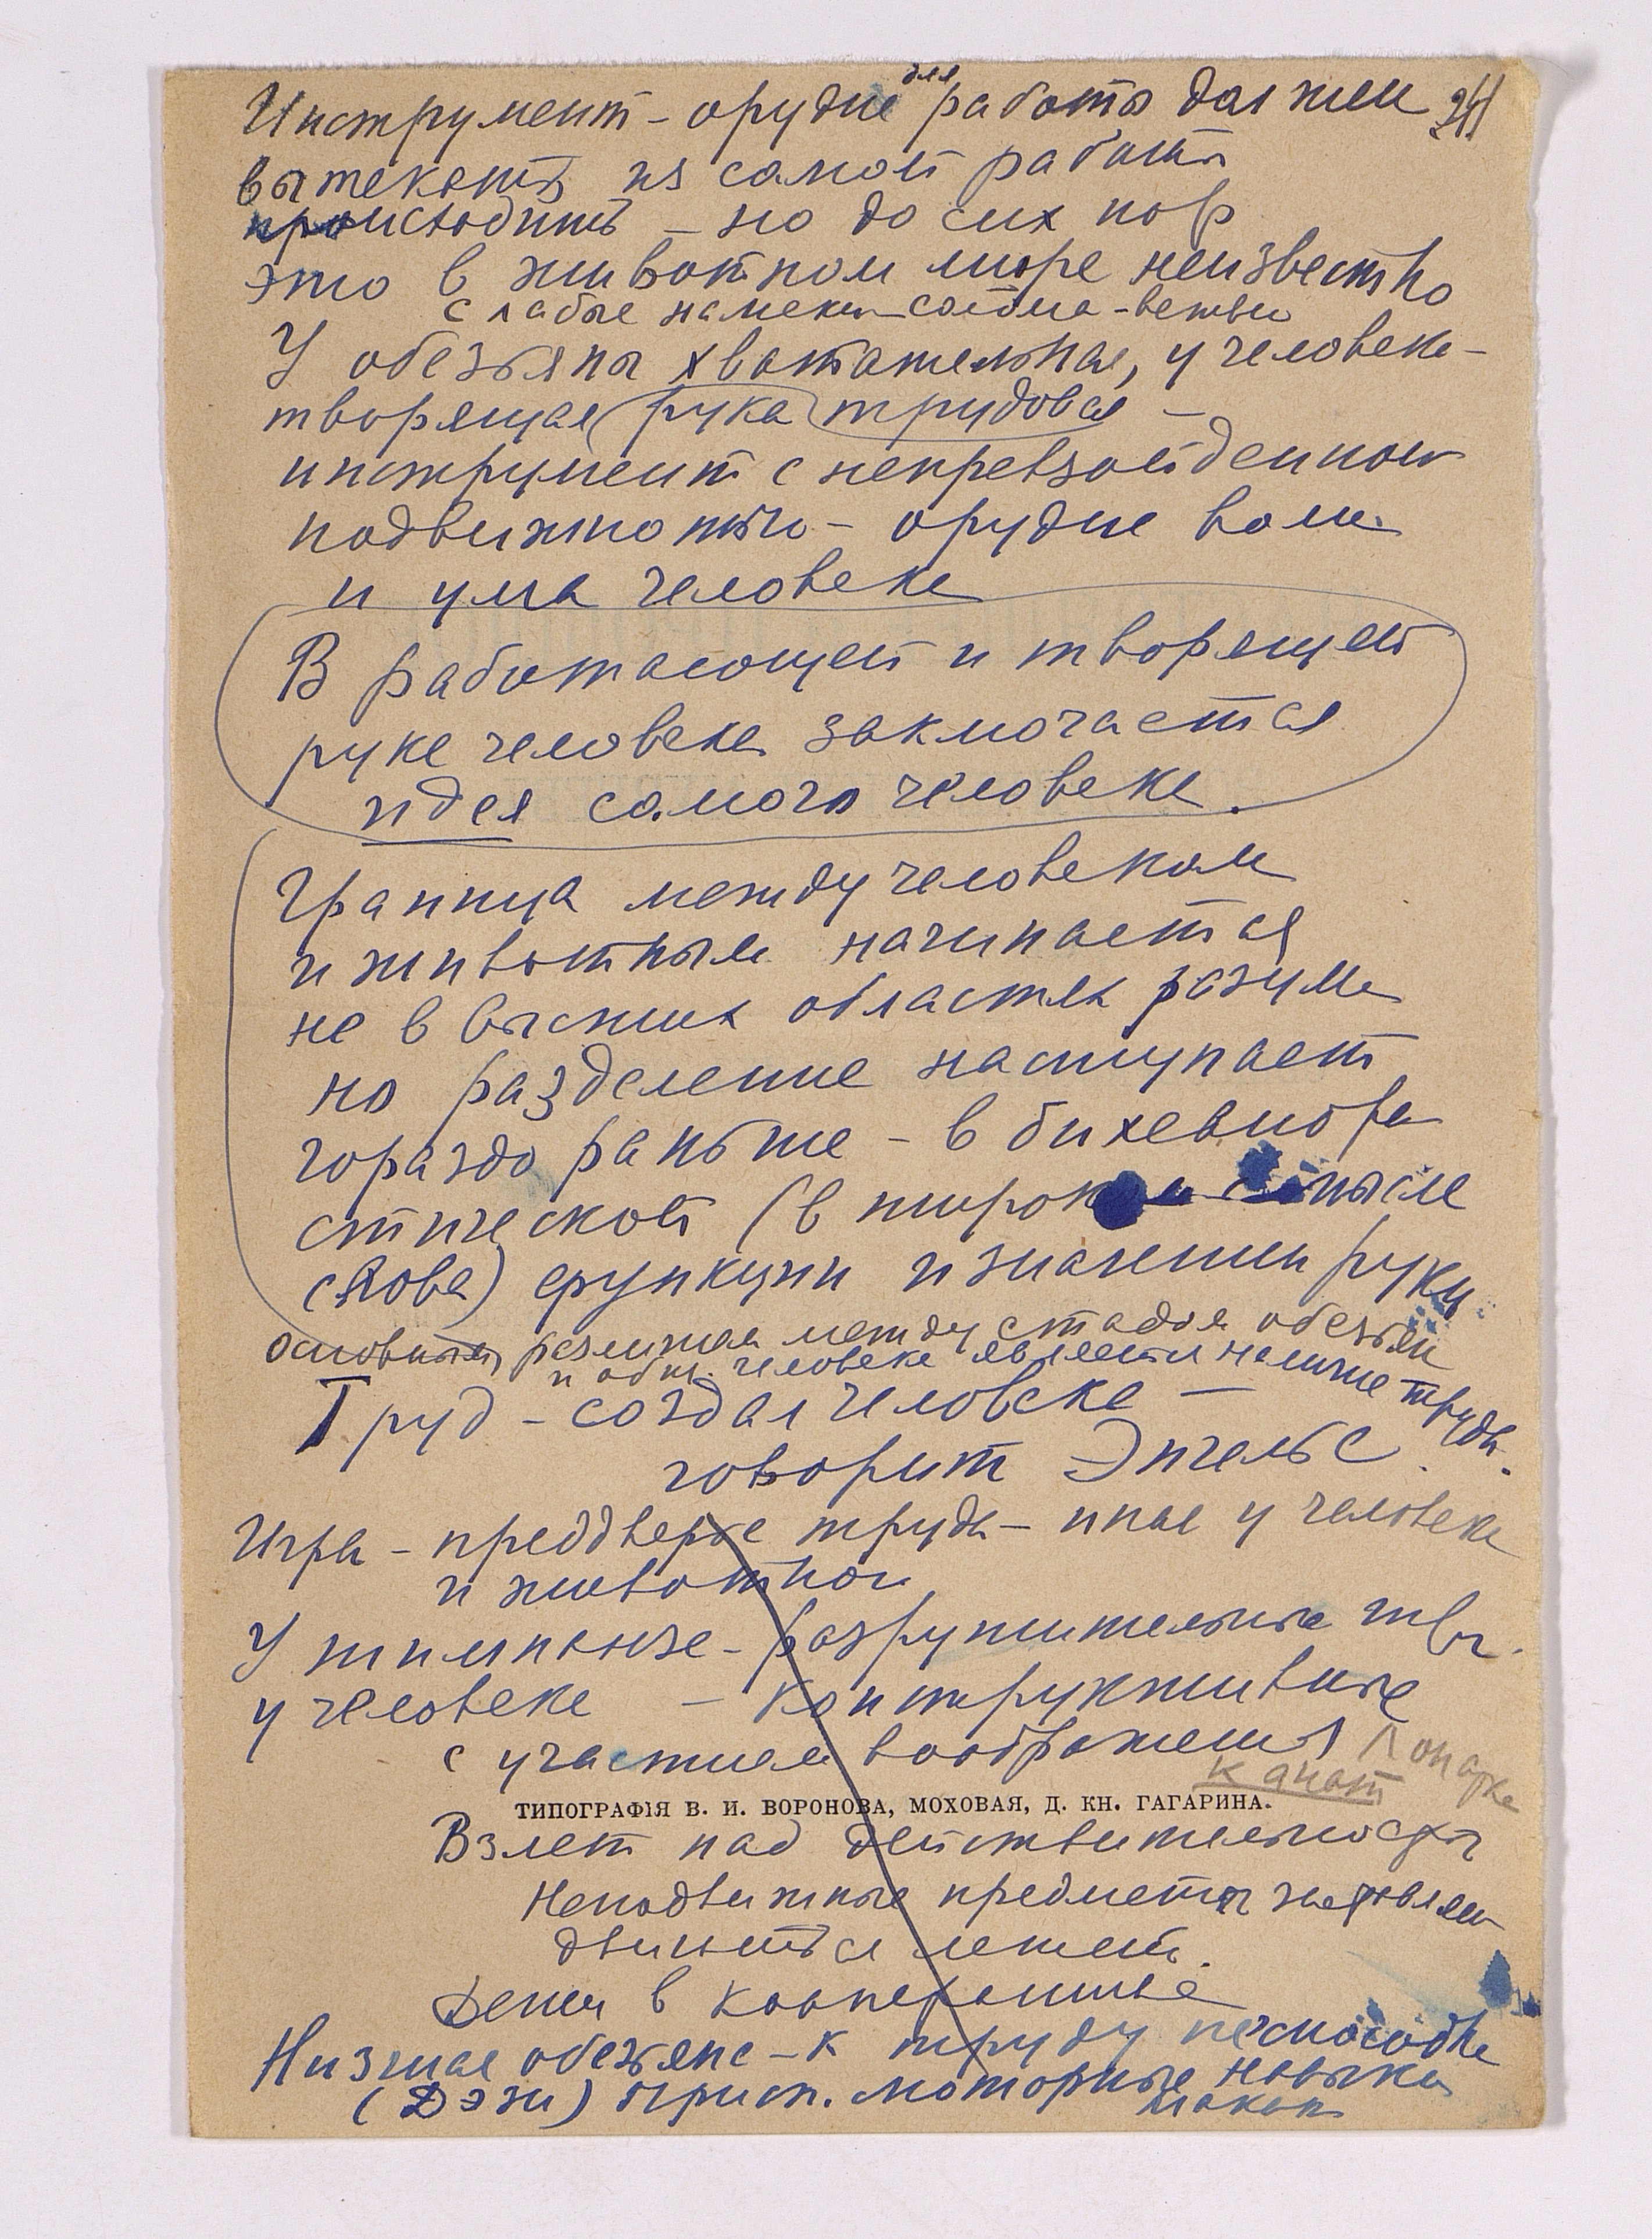 Инструмент - орудие для работы должен 241
вытекать из самой работы
происходить - но до сих пор
это в животном мире неизвестно
слабые намеки солома-ветви
У обезьяны хватательная, у человека -
творящая (рука) трудовая -
инструмент с непревзойденной
подвижностью - орудие воли
и ума человека
В работающей и творящей
руке человека заключается
идея самого человека.
Граница между человеком
и животным начинается
не в высших областях разума
но разделение наступает
гораздо раньше - в бихевиори
стической (в широком смысле
слова) функции и значении руки
основным различием между стадом обезьян
и общ. человека является наличие труда.
Труд - создал человека -
говорит Энгельс.
Игра - преддверье труда - иная у человека
и животного
У шимпанзе - разрушительные
у человека - конструктивные
с участием воображения
канат
ТИПОГРАФІЯ В. И. ВОРОНОВА, МОХОВАЯ, Д. КН. ГАГАРИНА.
Взлет над действительностью
Неподвижные предметы заставляет
двигаться летать.
Деньги в кооперативе
Низшая обезьяна - к труду неспособна
(Дэзи) Присп. моторные навыки
макак